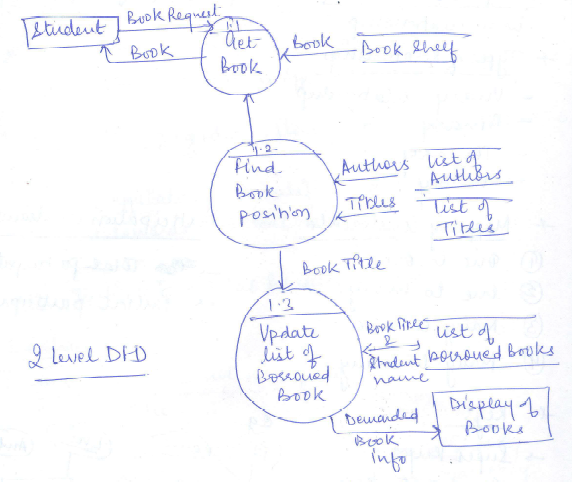 Student
Book Request
Book
1.1
Get
Book
Book
Book Shelf
1.2
Find
Book
position
Authors
list of
Authors
Titles
list of
Titles
Book Title
1.3
Update
list of
Borrowed
Book
Book Title
&
Student
name
list of
borrowed Books
2 Level DFD
Demanded
Book
Info
Display of
Books